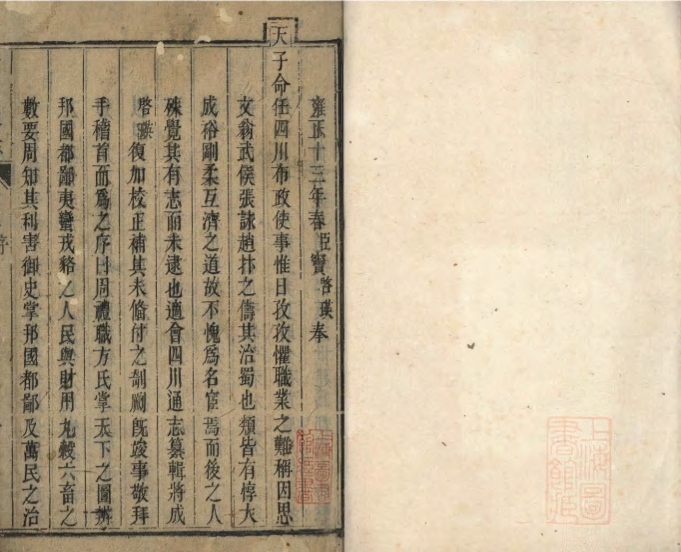 雍正十三年春臣竇啓瑛奉
天子命任四川布政使事惟日孜孜懼職業之難稱因思
文翁武侯張詠趙抃之儔其治蜀也類皆有惇大
成裕剛柔互濟之道故不愧爲名宦焉而後之人
殊覺其有志而未逮也適會四川通志纂輯將成
啓瑛復加校正補其未備付之剞劂旣竣事敬拜
手稽首而爲之序曰周禮職方氏掌天下之圖辨
邦國都鄙夷蠻戎貉之人民與財用九穀六畜之
數要周知其利害御史掌邦國都鄙及萬民之治
序
上海圖
書館藏